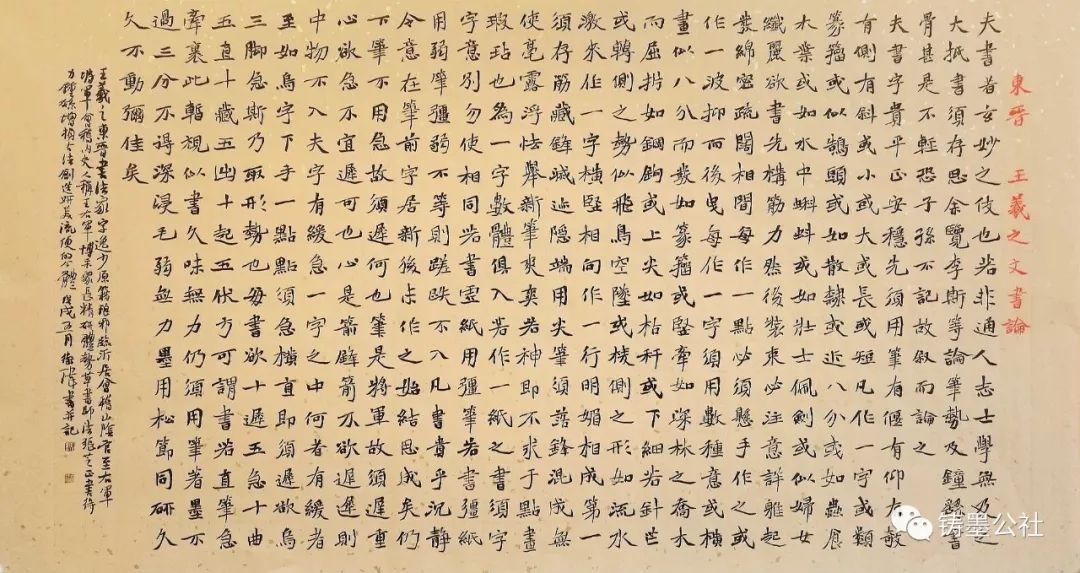 東晉 王羲之文書論
夫書者玄妙之伎也若非通人志士學無及之
大抵書須存思余覽李斯等論筆勢及鍾繇書
骨甚是不輕恐子孫不記故敘而論之
夫書字貴平正安穩先須用筆有偃有仰有敧
有側有斜或小或大或長或短凡作一字或類
篆籀或似鵠頭或如散隸或近八分或如蟲食
木葉或如水中蝌蚪或如壯士佩劍或似婦女
纖麗欲書先構筋力然後裝束必注意詳雅起
發綿密疏闊相間每作一點必須懸手作之或
作一波抑而後曳每作一字須用數種意或橫
畫似八分而發如篆籀或豎牽如深林之喬木
而屈折如鋼鉤或上尖如枯稈或下細若針芒
或轉側之勢似飛鳥空墜或棱側之形如流水
激來作一字橫豎相向作一行明媚相成第一
須存筋藏鋒滅迹隱端用尖筆須落鋒混成無
使毫露浮怯舉新筆爽爽若神即不求于點畫
瑕玷也為一字數體俱入若作一紙之書須字
字意別勿使相同若書虛紙用彊筆若書彊紙
用弱筆彊弱不等則蹉跌不入凡書貴乎沉靜
令意在筆前字居新後未作之始結思成矣仍
下筆不用急故須遲何也筆是將軍故須遲重
心欲急不宜遲何也心是箭鋒箭不欲遲遲則
中物不入夫字有緩急一字之中何者有緩者
至如烏字下手一點點須急橫直即須遲欲烏
三腳急斯乃取形勢也每書欲十遲五急十曲
五直十藏五出十起五伏方可謂書若直筆急
牽裹此暫視似書久味無力仍須用筆著墨不
過三分不得深浸毛弱無力墨用松節同研久
久不動彌佳矣
王羲之東晉書法家字逸少原籍琅邪臨沂居會稽山陰官至右軍
將軍會稽內史人稱王右軍博采眾長精研體勢草書師法張芝正書得
力鍾繇增損古法創造妍美流便的今體 戊戌五月 書并記
铸墨公社